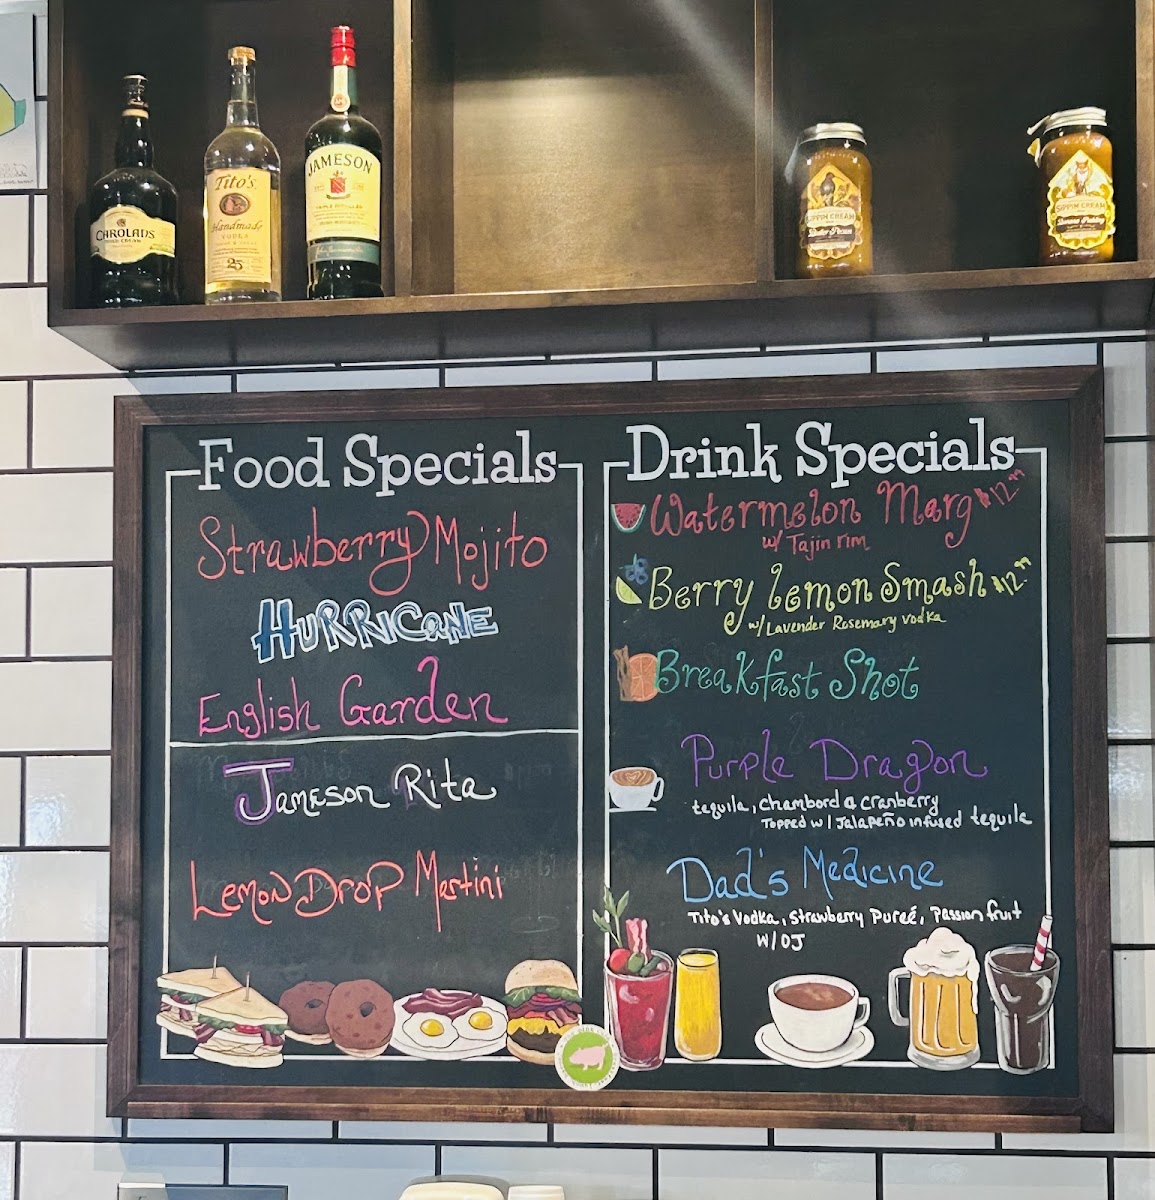 CAROLANS
IRISH CREAM
Tito's
Handmade
VODKA
25
JAMESON
TRIPLE DISTILLED
SIPPIN CREAM
SIPPIN CREAM
Food Specials
Strawberry Mojito
HURRICaNE
English Garden
Jameson Rita
Lemon Drop Martini
Drink Specials
Watermelon Marg
w/ Tajin rim
Berry Lemon Smash
w/ Lavender Rosemary vodka
Breakfast Shot
Purple Dragon
tequila, Chambord & cranberry
Topped w/ Jalapeño infused tequila
Dad's Medicine
Tito's Vodka, Strawberry Pureé, Passion fruit
w/ OJ